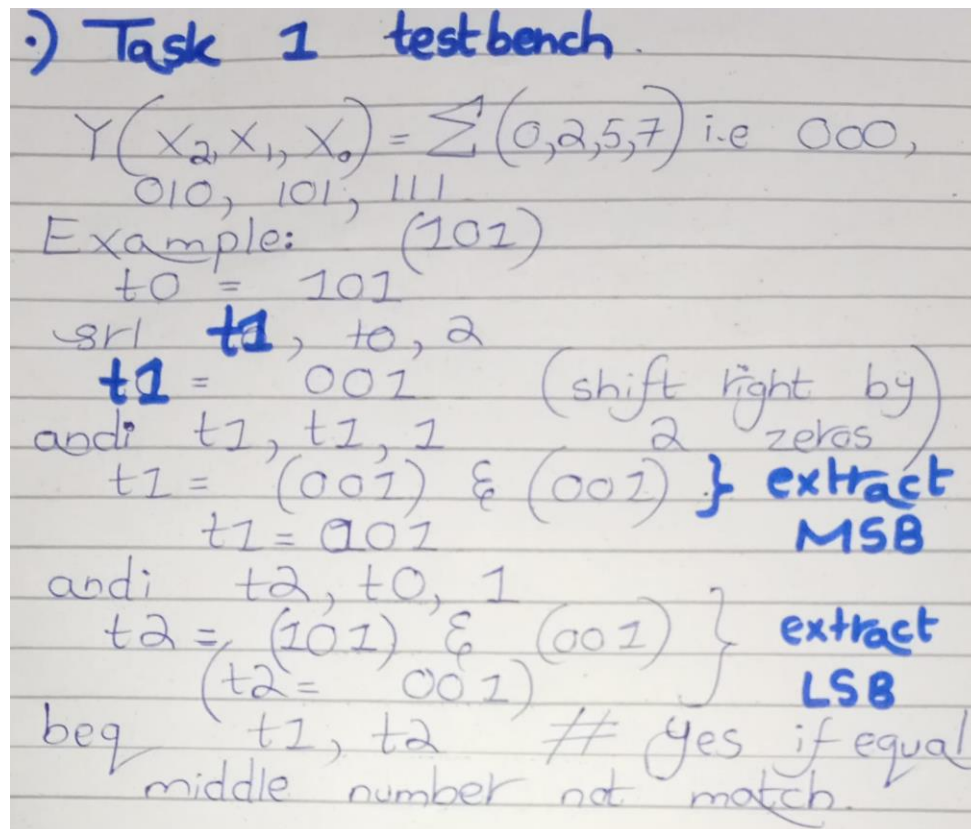 .) Task 1 testbench.
Y(X2, X1, X0) = Σ(0,2,5,7) i.e 000,
010, 101, 111
Example: (101)
t0 = 101
srl t1, t0, 2
t1 = 001 (shift right by
andi t1, t1, 1 2 zeros)
t1 = (001) & (001) } extract
t1 = 001 MSB
andi t2, t0, 1
t2 = (101) & (001) } extract
(t2 = 001) LSB
beq t1, t2 # yes if equal
middle number not match.